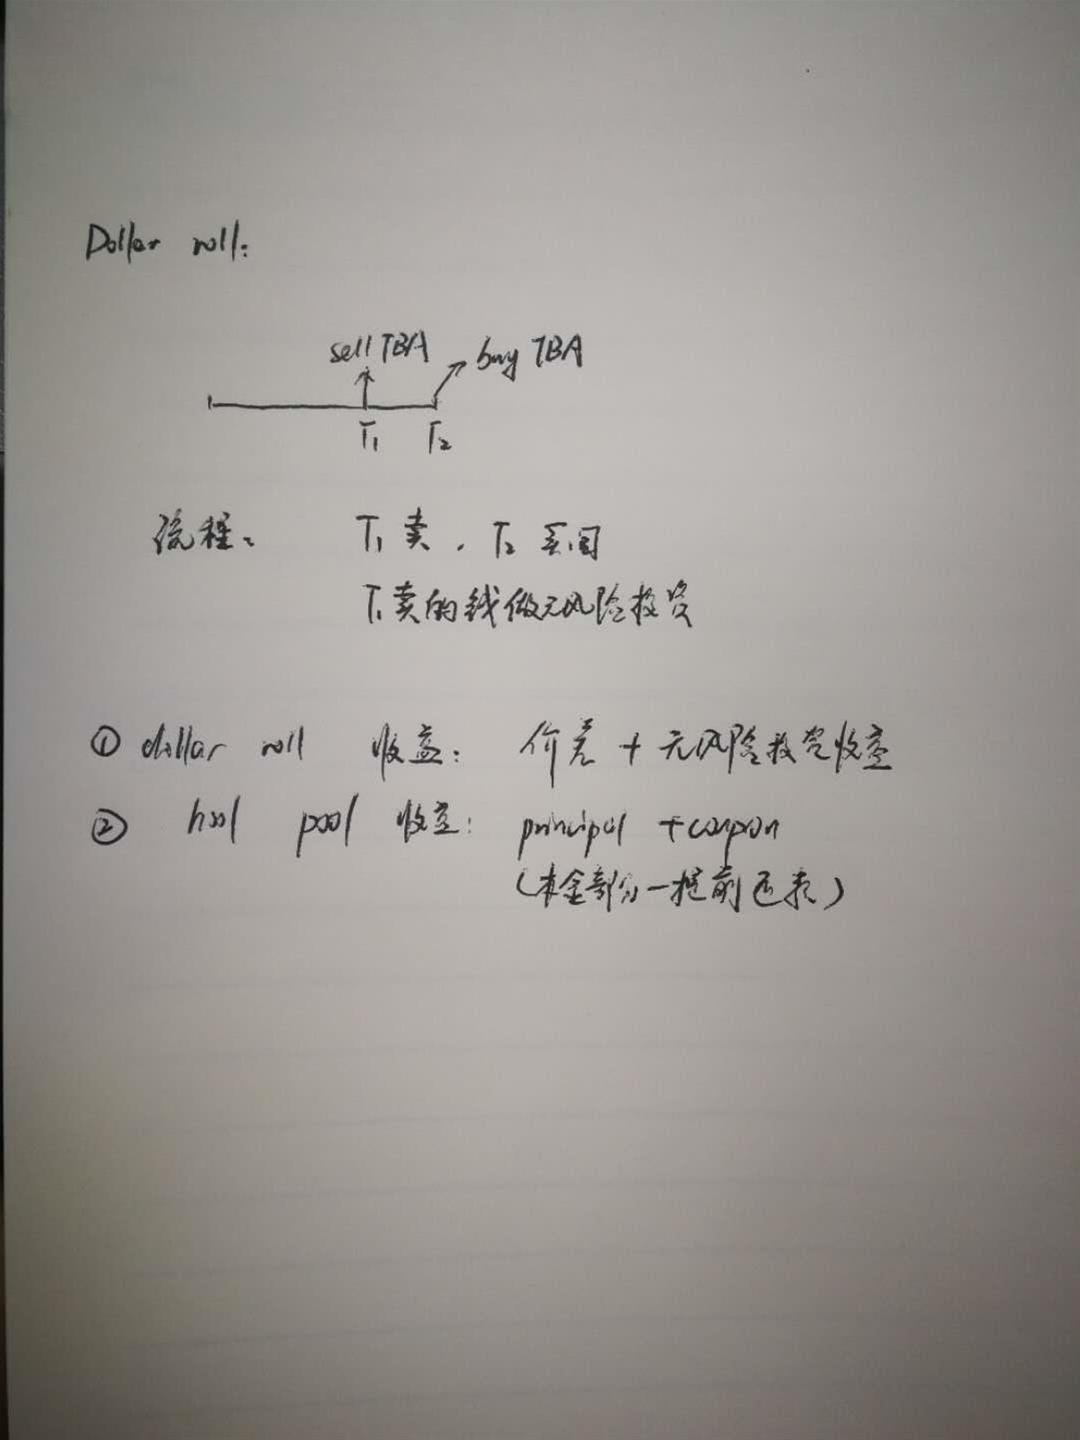 Dollar roll:
sell TBA buy TBA
T₁ T₂
流程:
T₁卖, T₂买回
T₁卖的钱做无风险投资
① dollar roll 收益: 价差 + 无风险投资收益
② hool pool 收益: principal + coupon
(本金部分一提前还款)